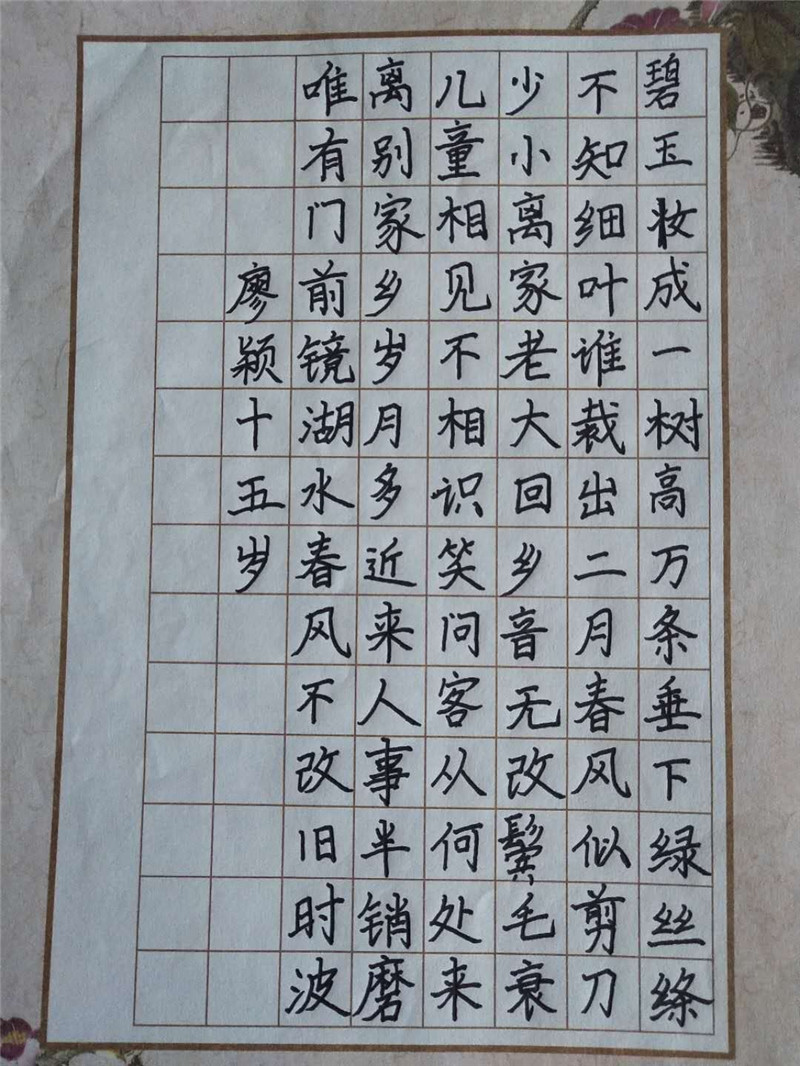 碧玉妆成一树高万条垂下绿丝绦
不知细叶谁裁出二月春风似剪刀
少小离家老大回乡音无改鬓毛衰
儿童相见不相识笑问客从何处来
离别家乡岁月多近来人事半销磨
唯有门前镜湖水春风不改旧时波
廖颖十五岁